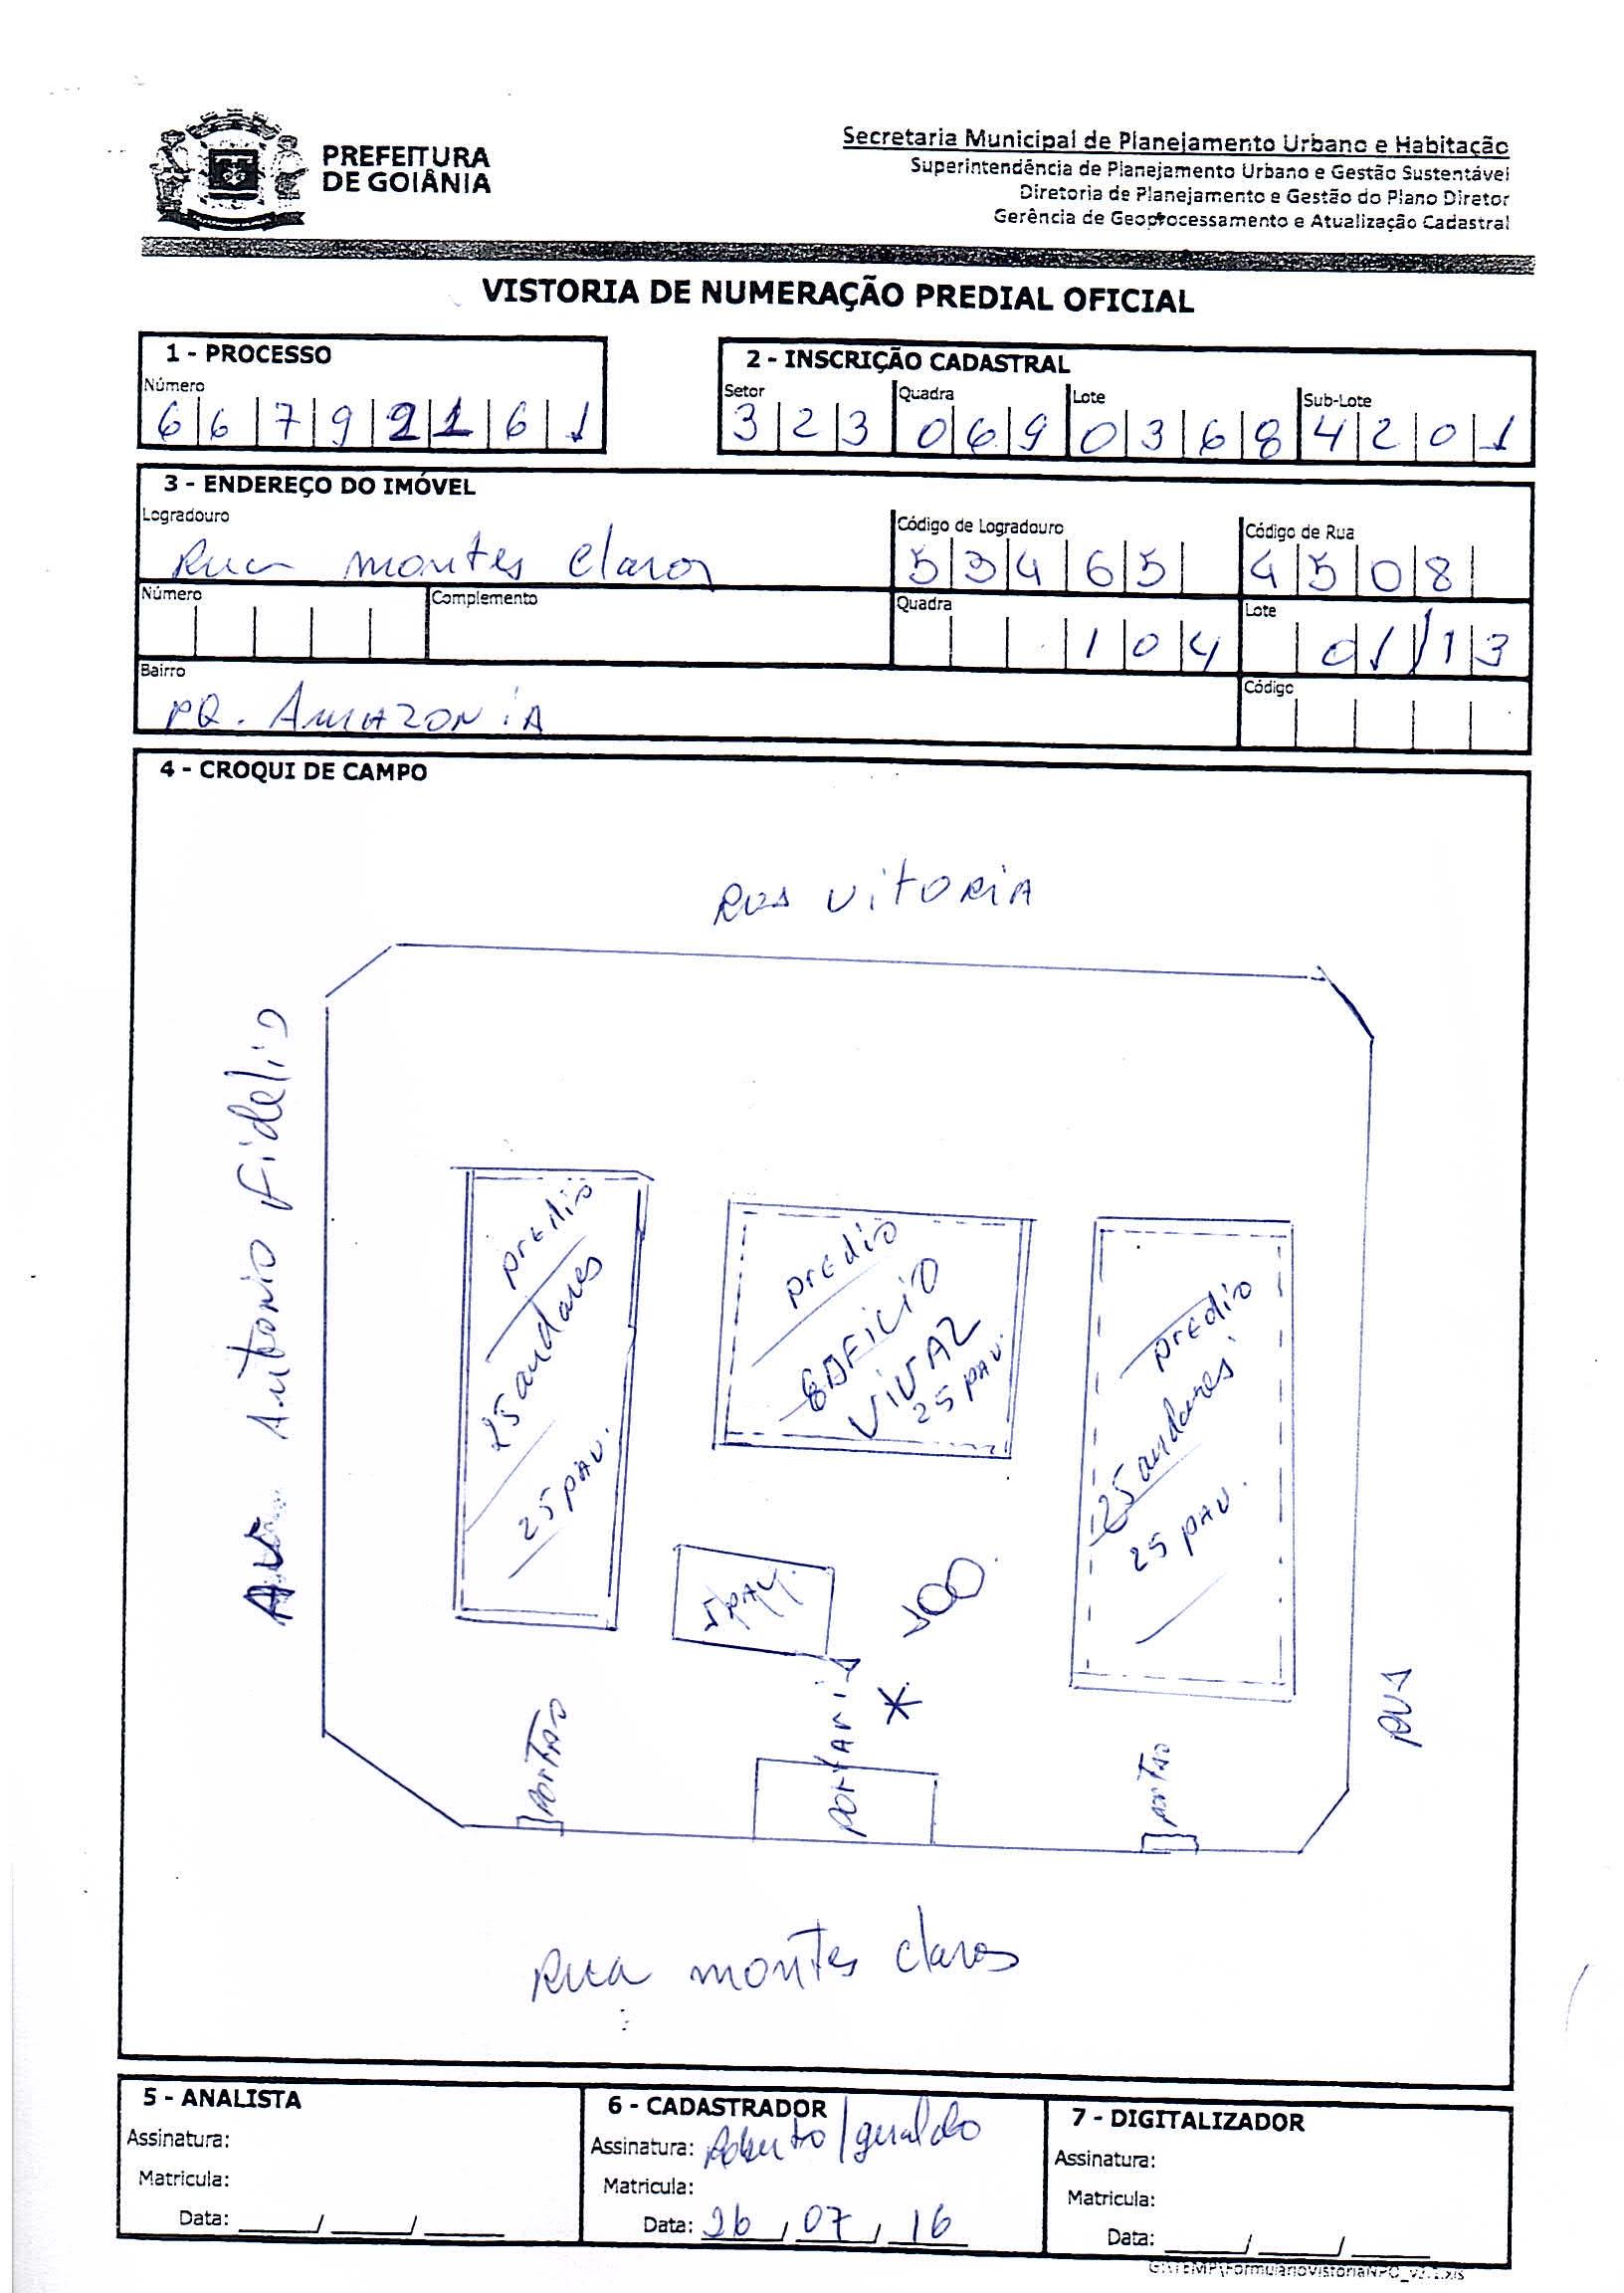 PREFEITURA
DE GOIÂNIA
Secretaria Municipal de Planejamento Urbano e Habitação
Superintendência de Planejamento Urbano e Gestão Sustentável
Diretoria de Planejamento e Gestão do Plano Diretor
Gerência de Geoprocessamento e Atualização Cadastral
VISTORIA DE NUMERAÇÃO PREDIAL OFICIAL
1 - PROCESSO
Número
6 6 7 9 2 1 6 1
2 - INSCRIÇÃO CADASTRAL
Setor Quadra Lote Sub-Lote
3 2 3 0 6 9 0 3 6 8 4 2 0 1
3 - ENDEREÇO DO IMÓVEL
Logradouro Código de Logradouro Código de Rua
Rua montes Claros 5 3 4 6 5 4 5 0 8
Número Complemento Quadra Lote
1 0 4 01/13
Bairro Código
PQ. AMAZONIA
4 - CROQUI DE CAMPO
RUA VITORIA
AV. Antonio Fidelis
predio
25 andares
25 PAV.
predio
EDIFICIO
VIVAZ
25 PAV.
predio
25 andares
25 PAV.
1 PAV.
100
PORTARIA
*
PORTÃO
PORTÃO
RUA
Rua montes claros
5 - ANALISTA
Assinatura:
Matricula:
Data: ____/____/____
6 - CADASTRADOR
Assinatura: Roberto/geraldo
Matricula:
Data: 26/07/16
7 - DIGITALIZADOR
Assinatura:
Matricula:
Data: ____/____/____
G:\TEMP\FormularioVistoriaNPO_v2.1.xls